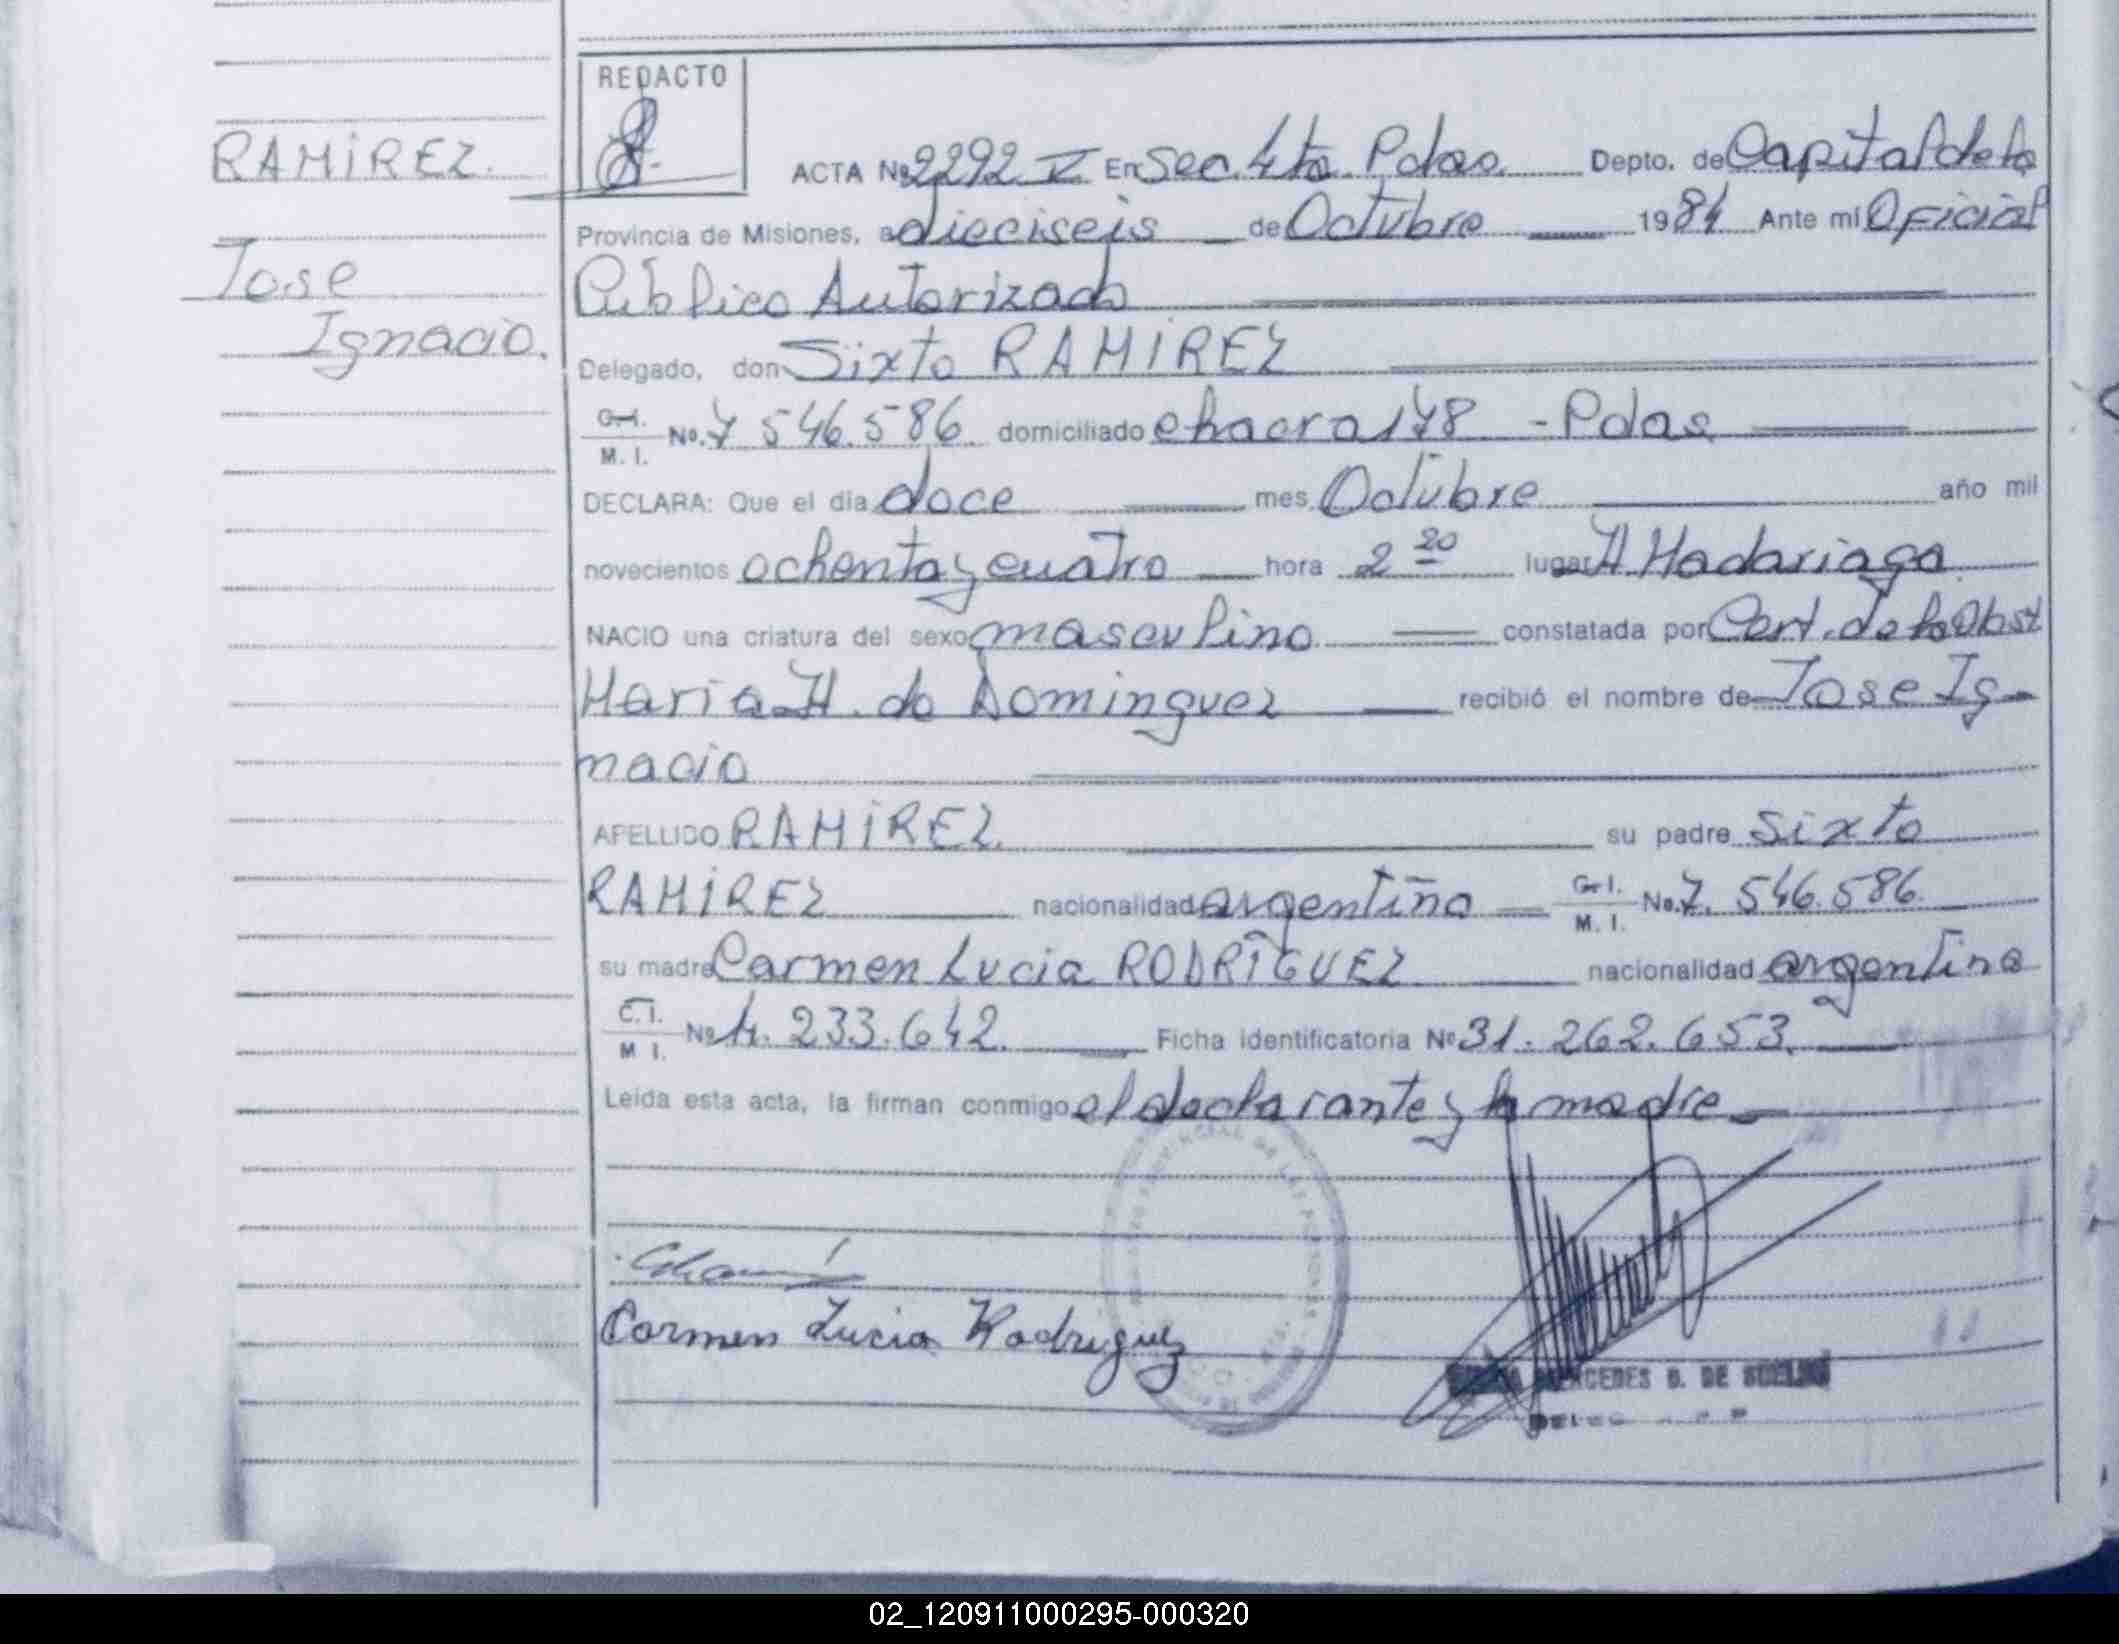 REDACTO
RAMIREZ.
ACTA Nº 2292 V En Sec. 4ta Pdas. Depto. de Capital de la
Provincia de Misiones, a dieciseis de Octubre 1984 Ante mí Oficial
Jose
Público Autorizado
Ignacio.
Delegado, don Sixto RAMIREZ
C. I.
M. I.
No. 7 546.586. domiciliado chacra 178 - Pdas
DECLARA: Que el día doce mes Octubre año mil
novecientos ochenta y cuatro hora 2 20 lugar H Madariaga.
NACIO una criatura del sexo masculino constatada por Cert. de la Obst
Maria H. de Dominguez recibió el nombre de Jose Ig-
nacio
APELLIDO RAMIREZ. su padre Sixto
RAMIREZ nacionalidad argentino C. I.
M. I.
No. 7. 546.586.
su madre Carmen Lucia RODRIGUEZ nacionalidad argentina
C. I.
M I.
Nº 4. 233.642. Ficha identificatoria Nº 31.262.653.
Leída esta acta, la firman conmigo el declarante y la madre
Carmen Lucia Rodriguez
MERCEDES B. DE
02_120911000295-000320